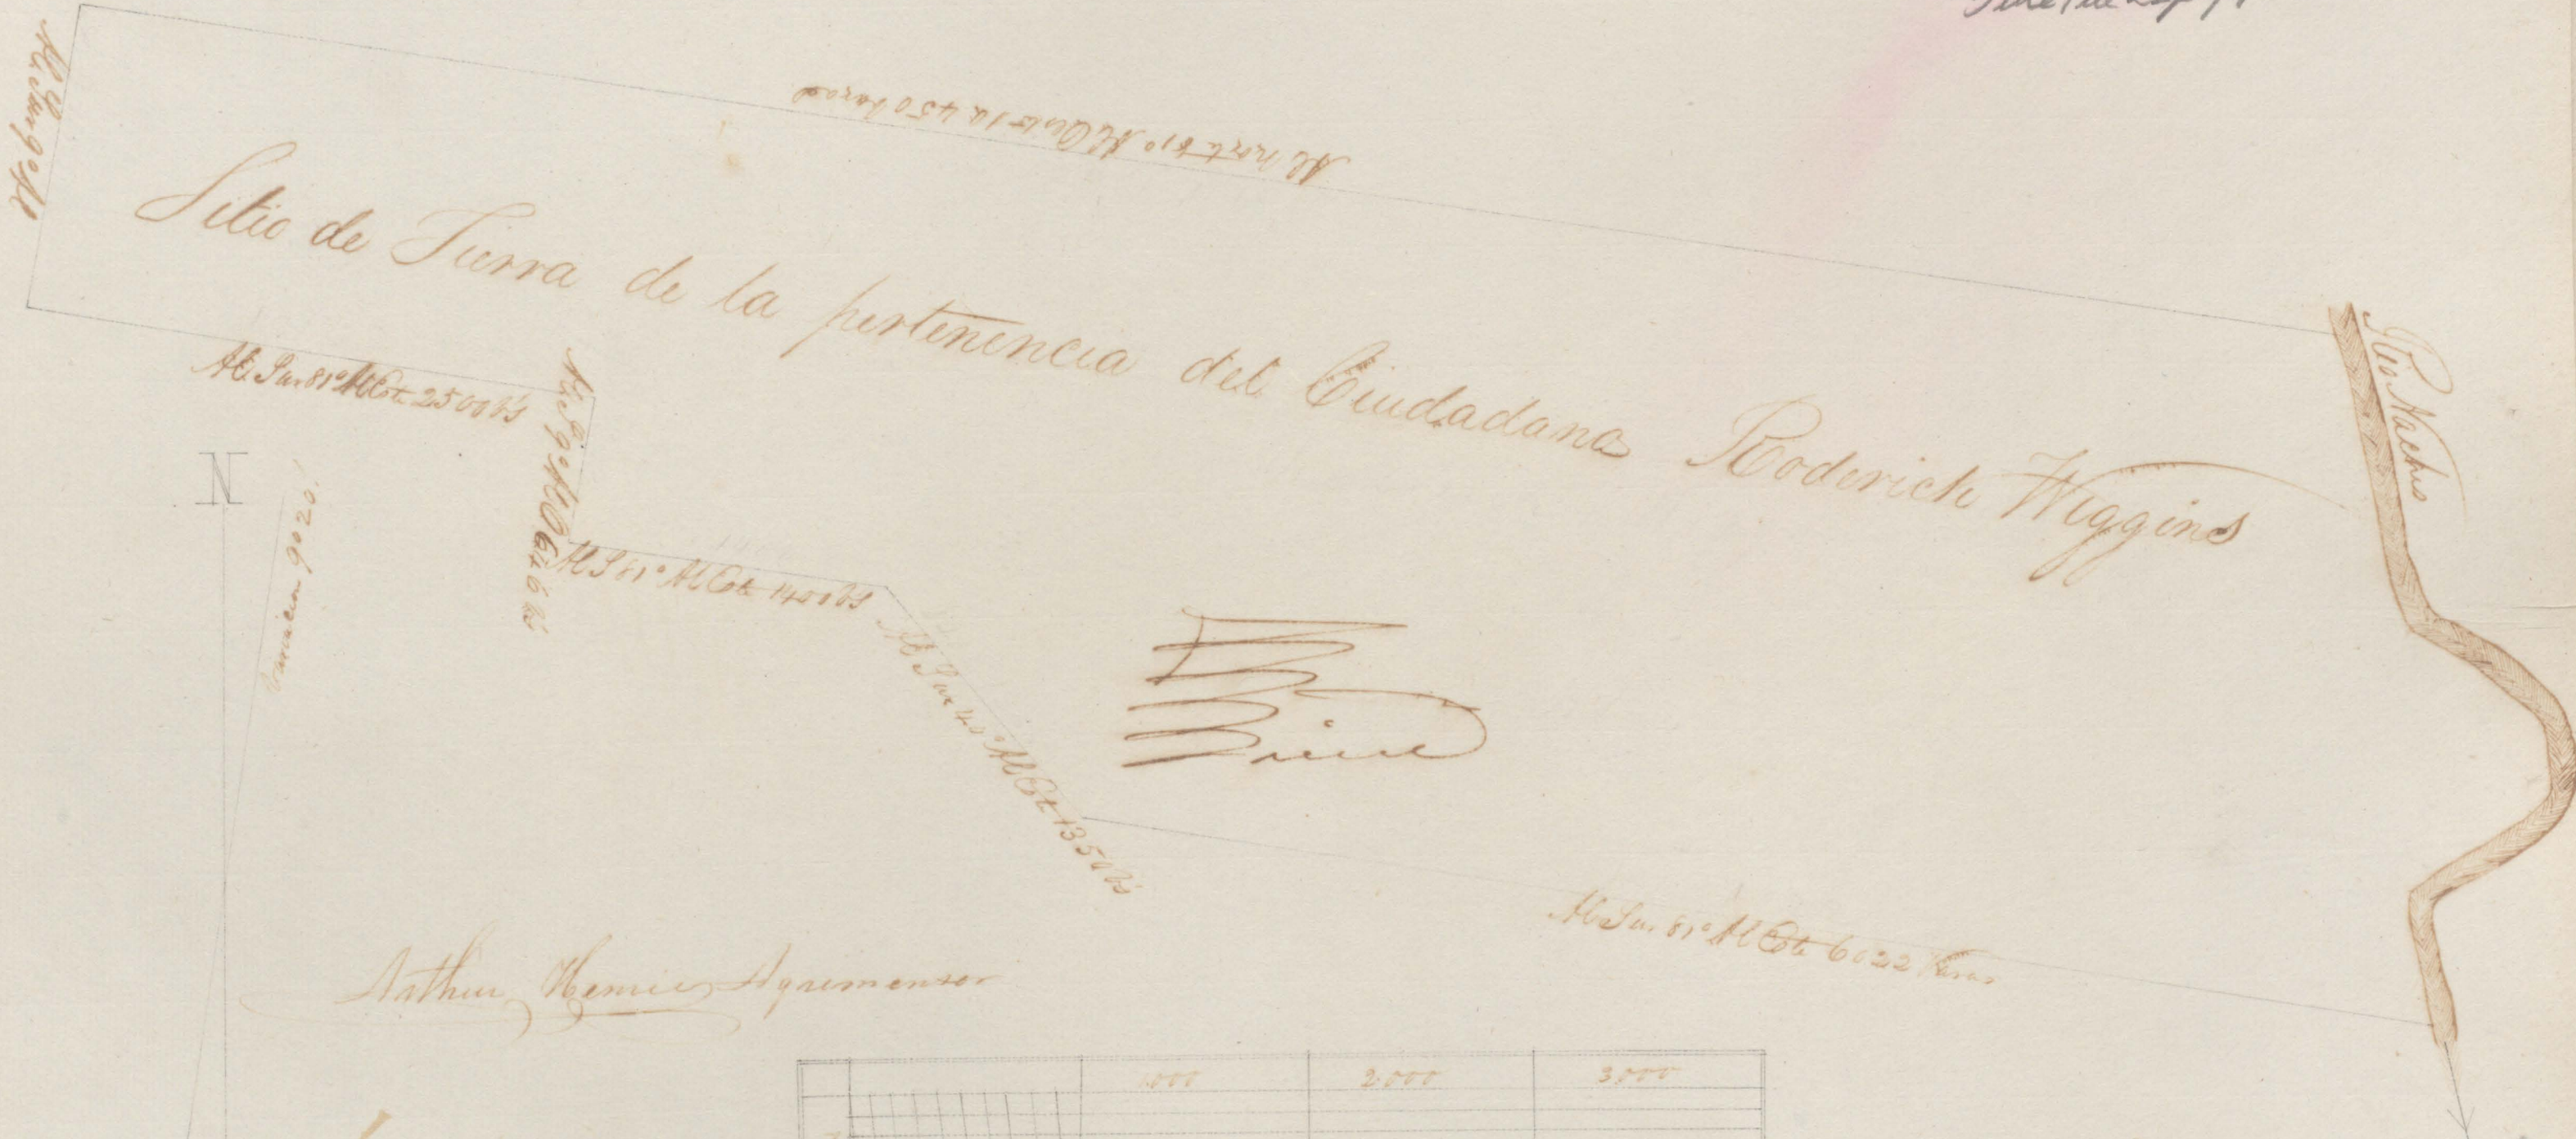 Al Norte 81° Al Oeste 1a 450 baras
Sitio de Tierra de la pertenencia del Ciudadano Roderick Wiggins
Rio Naches
Al Sur 81° Al Este 2500 bs
N
Variacion 9° 20'
Al S 9° Al O 646 bs
Al S 81° Al Este 1400 bs
Al Sur 44° Al Este 1350 bs
Al Sur 81° Al Este 6022 Varas
Arthur Henrie Agrimensor
1000 2000 3000